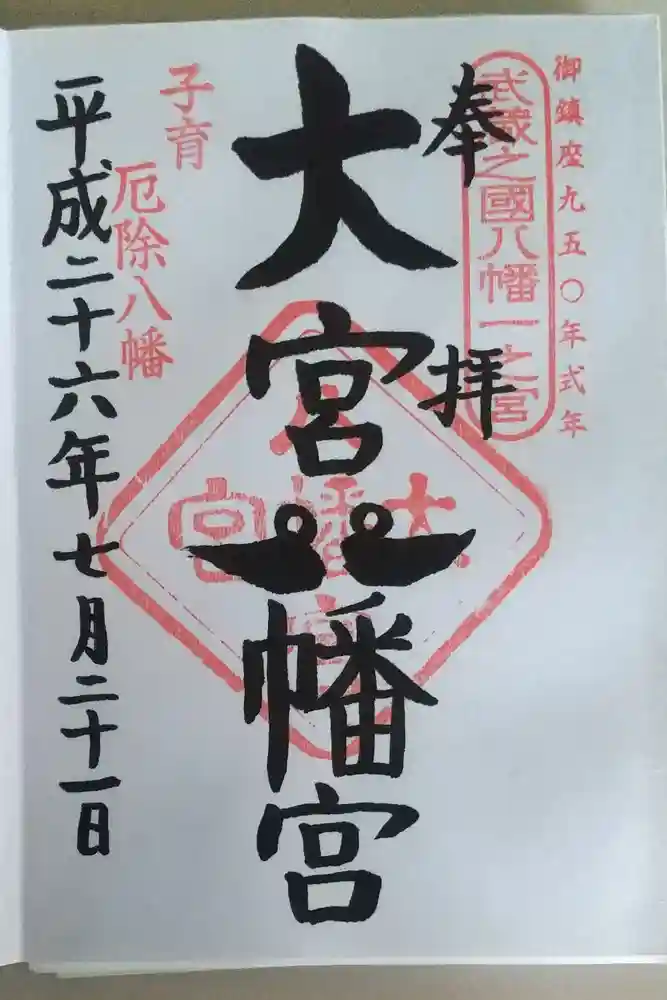 御鎮座九五〇年式年
武蔵之國八幡一之宮
奉拝
大宮八幡宮
大宮
八幡宮
子育
厄除八幡
平成二十六年七月二十一日